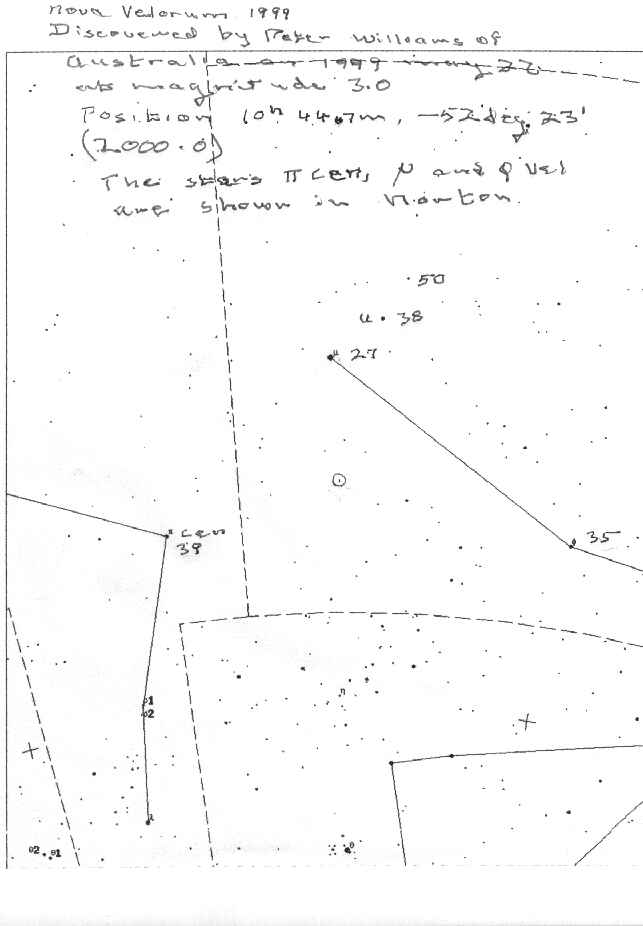 Nova Velorum 1999
Discovered by Peter Williams of
Australia on 1999 may 22
at magnitude 3.0
Position 10h 44.7m, -52 deg. 23'
(2000.0)
The stars π Cen, μ and φ Vel
are shown in Norton.
50
u 38
μ 27
π Cen
39
φ 35
o1
o2
η
λ
o2 o1
θ